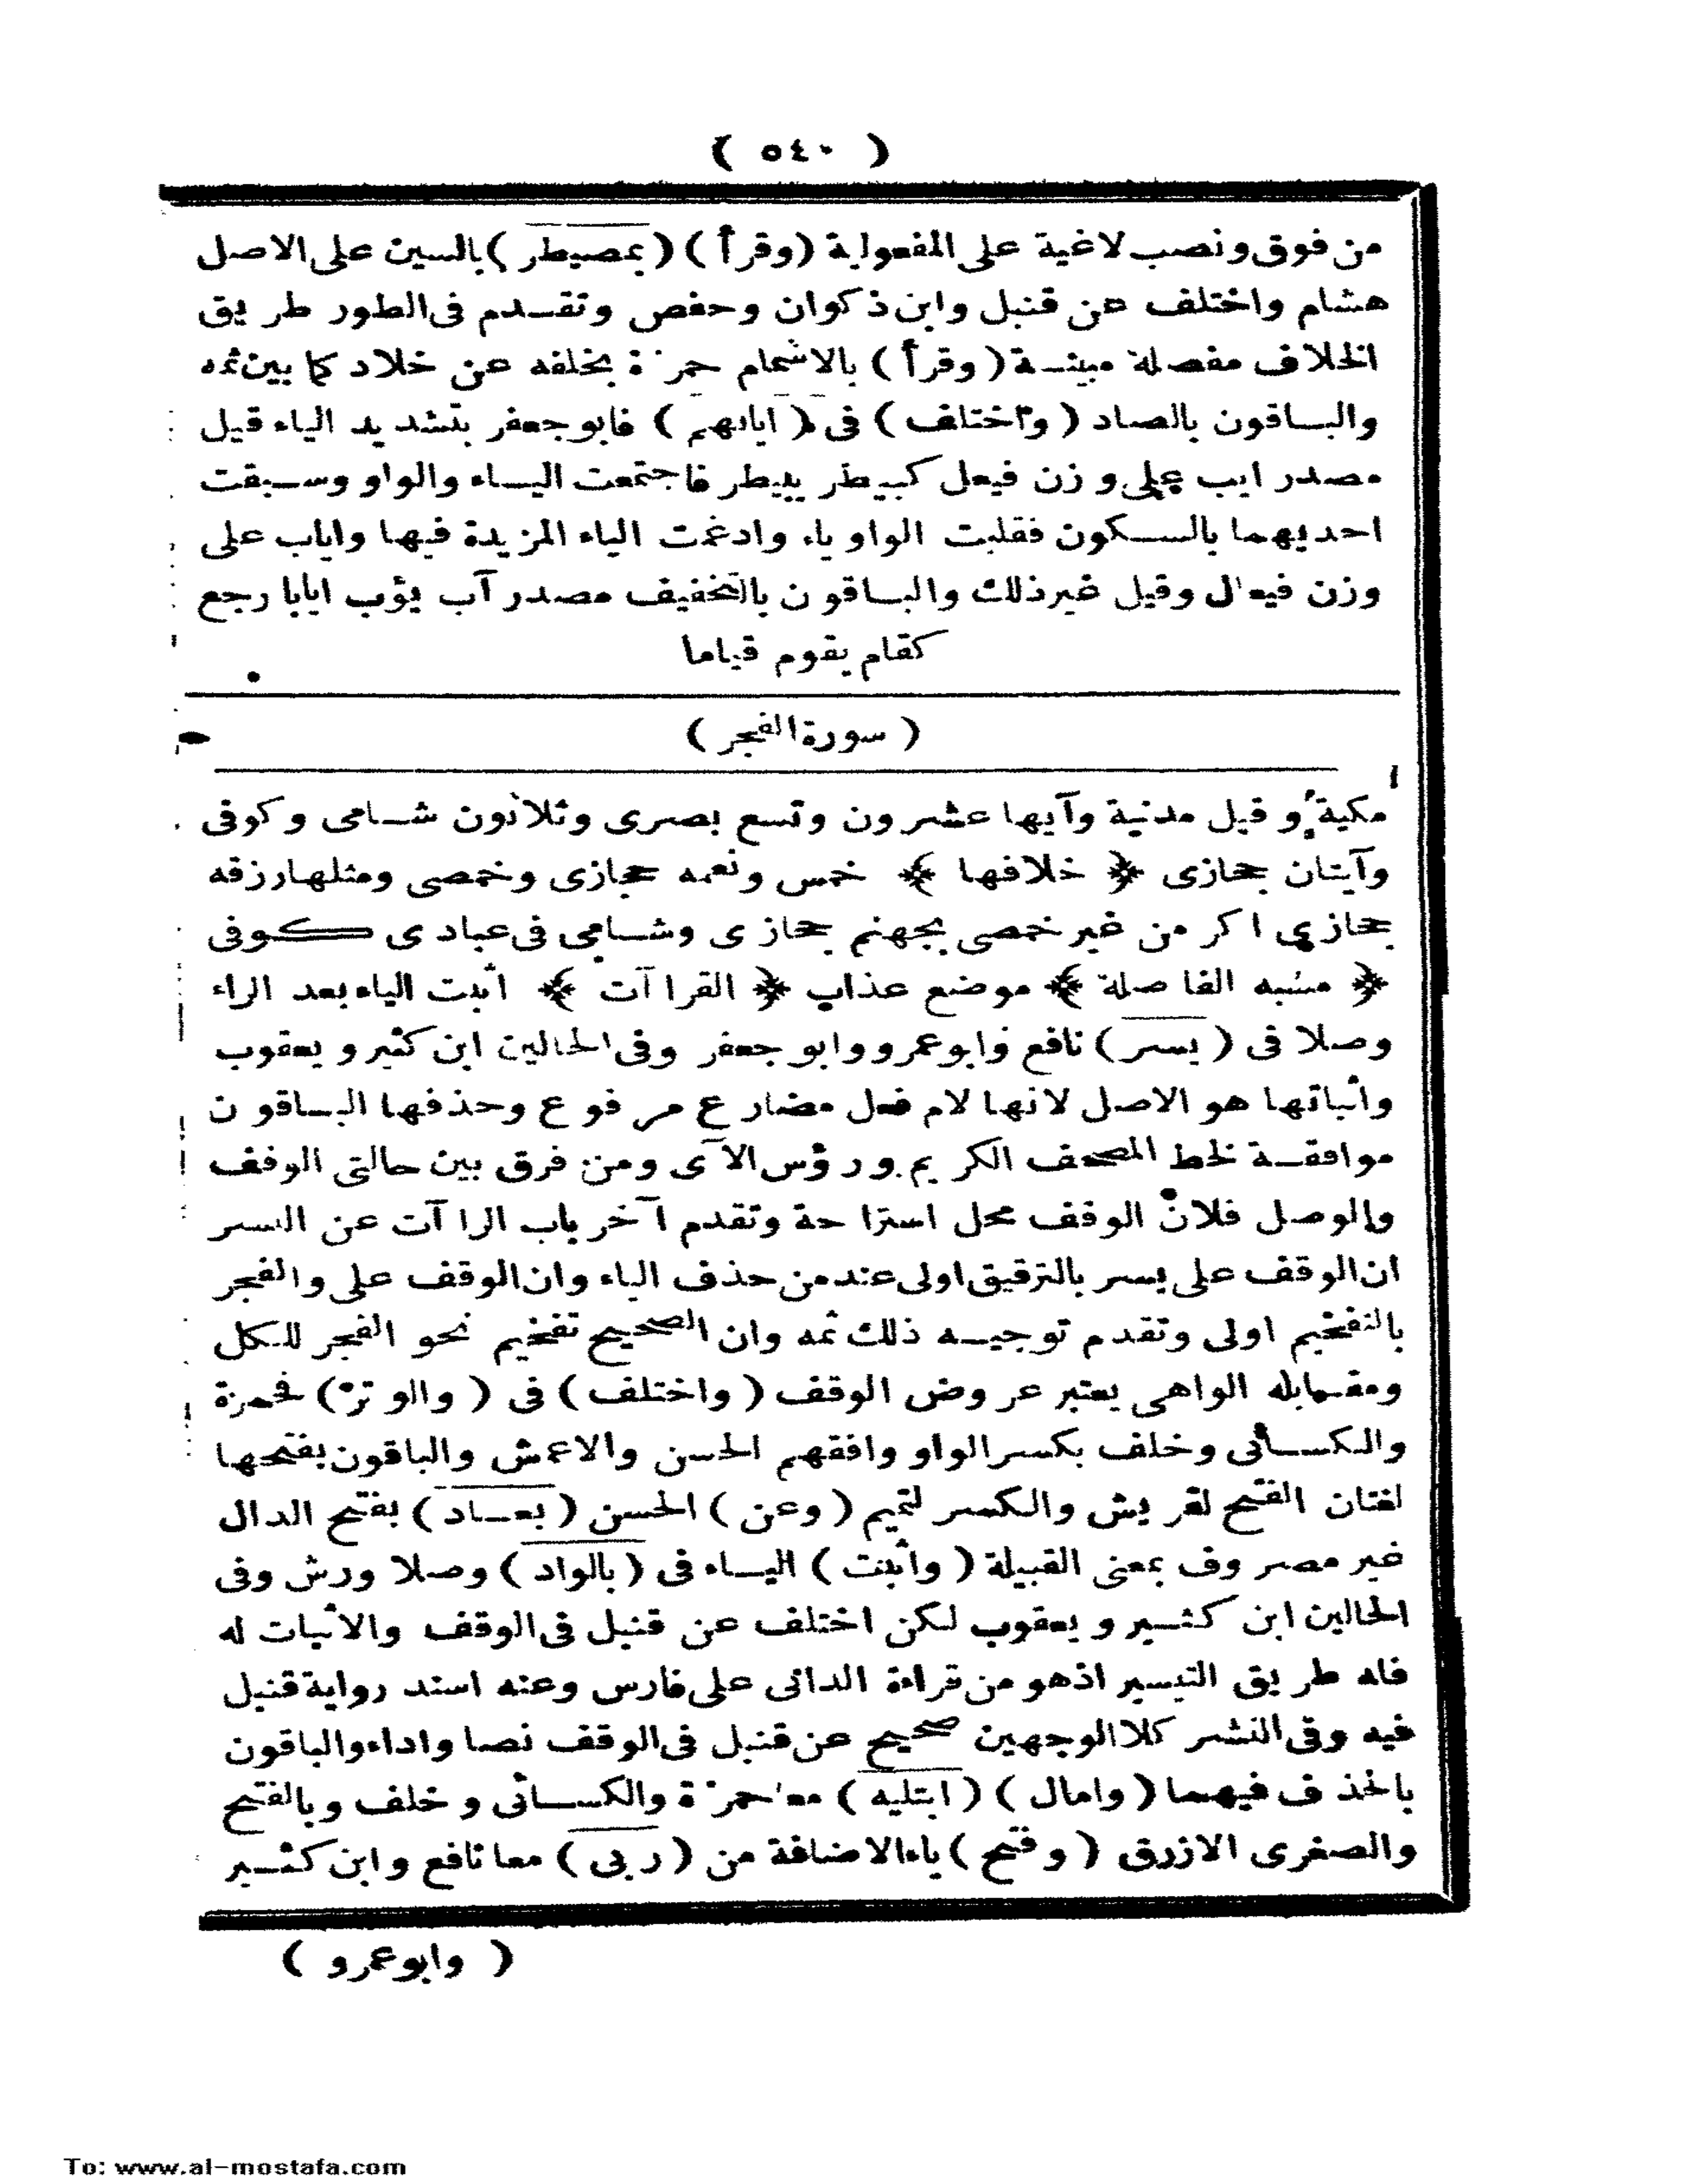 ( ٥٤٠ )
من فوق ونصب لاغية على المفعولية (وقرأ) (بمصيطر) بالسين على الاصل
هشام واختلف عن قنبل وابن ذكوان وحفص وتقدم فى الطور طريق
الخلاف مفصلة مبينة (وقرأ) بالاشمام حمزة بخلفه عن خلاد كما بين ثمه
والباقون بالصاد (واختلف) فى (ايابهم) فابو جعفر بتشديد الياء قيل
مصدر ايب على وزن فيعل كبيطر يبيطر فاجتمعت الياء والواو وسبقت
احديهما بالسكون فقلبت الواو ياء وادغمت الياء المزيدة فيها واياب على
وزن فيعال وقيل غير ذلك والباقون بالتخفيف مصدر آب يؤب ايابا رجع
كقام يقوم قياما
( سورة الفجر )
مكية و قيل مدنية وآيها عشرون وتسع بصرى وثلاثون شامى وكوفى
وآيتان حجازى ﴿ خلافها ﴾ خمس ونعمه حجازى وحمصى ومثلها رزقه
حجازى اكرمن غير حمصى بجهنم حجازى وشامى فى عبادى كوفى
﴿ مشبه الفاصلة ﴾ موضع عذاب ﴿ القراآت ﴾ اثبت الياء بعد الراء
وصلا فى (يسر) نافع وابو عمرو وابو جعفر وفى الحالين ابن كثير ويعقوب
واثباتها هو الاصل لانها لام فعل مضارع مرفوع وحذفها الباقون
موافقة لخط المصحف الكريم ورؤس الآى ومن فرق بين حالتى الوقف
والوصل فلان الوقف محل استراحة وتقدم آخر باب الراآت عن النسر
ان الوقف على يسر بالترقيق اولى عند من حذف الياء وان الوقف على والفجر
بالتفخيم اولى وتقدم توجيه ذلك ثمه وان الصحيح تفخيم نحو الفجر للكل
ومقابله الواهى يعتبر عروض الوقف (واختلف) فى (والوتر) فحمزة
والكسائى وخلف بكسر الواو وافقهم الحسن والاعمش والباقون بفتحها
لغتان الفتح لقريش والكسر لتميم (وعن) الحسن (بعاد) بفتح الدال
غير مصروف بمعنى القبيلة (واثبت) الياء فى (بالواد) وصلا ورش وفى
الحالين ابن كثير ويعقوب لكن اختلف عن قنبل فى الوقف والاثبات له
فاله طريق التيسير اذ هو من قراءة الدانى على فارس وعنه اسند رواية قنبل
فيه وفى النشر كلا الوجهين صحيح عن قنبل فى الوقف نصا واداء والباقون
بالحذف فيهما (وامال) (ابتليه) معا حمزة والكسائى وخلف وبالفتح
والصغرى الازرق (وفتح) ياء الاضافة من (ربى) معا نافع وابن كثير
( وابو عمرو )
To: www.al-mostafa.com